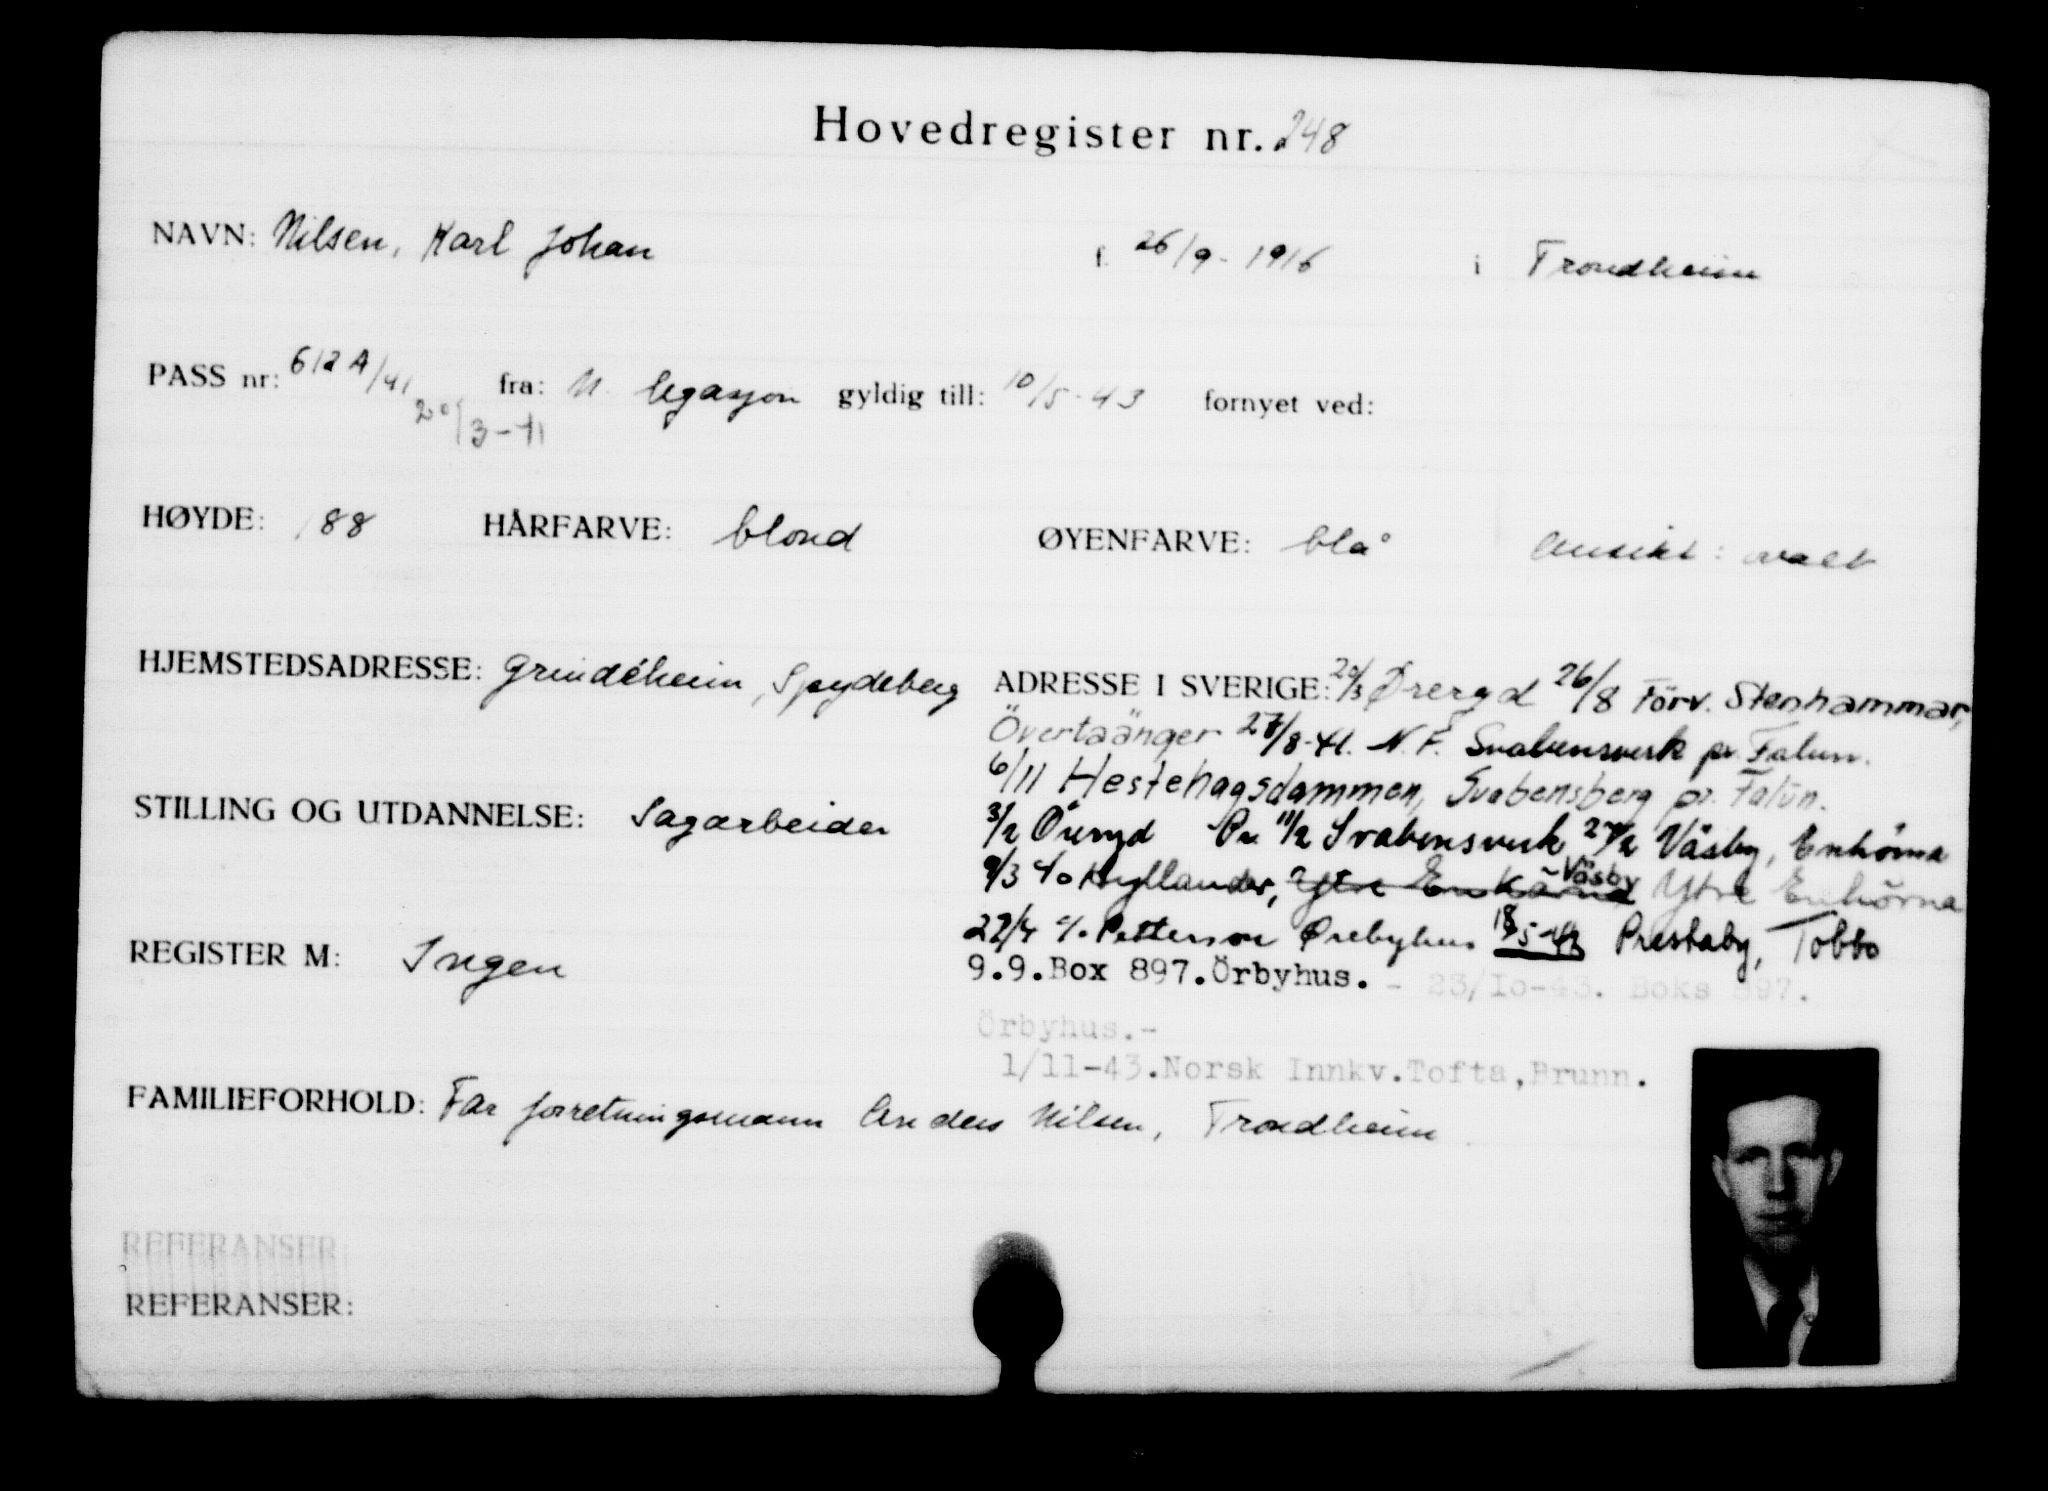 Hovedregister nr. 248
NAVN: Nilsen, Karl Johan f. 26/9-1916 i Trondheim
PASS nr: 612 A/41 fra: N. legasjon gyldig till: 10/5-43 fornyet ved:
20/3-41
HØYDE: 188 HÅRFARVE: blond ØYENFARVE: blå Ansikt: ovalt
HJEMSTEDSADRESSE: Grindeheim, Spydeberg
ADRESSE I SVERIGE: 20/3 Øreryd 26/8 Förv. Stenhammar,
Övertaänger 27/8-41. N. F. Svabensverk pr. Falun.
6/11 Hestehagsdammen, Svabensberg pr. Falun.
3/2 Öreryd Pr. 11/2 Svabensverk 27/2 Väsby, Enhörna
9/3 c/o Hyllander, Ytre Enhörna Väsby Ytre Enhörna
22/4 c/o Petterson Ørebyhus 18/5-43 Prestaby, Tobbo
9.9.Box 897.Örbyhus. - 23/Io-43. Boks 897.
Örbyhus.-
1/11-43.Norsk Innkv.Tofta,Brunn.
STILLING OG UTDANNELSE: Sagarbeider
REGISTER M: Ingen
FAMILIEFORHOLD: Far forretningsmann Anders Nilsen, Trondheim
REFERANSER:
REFERANSER: